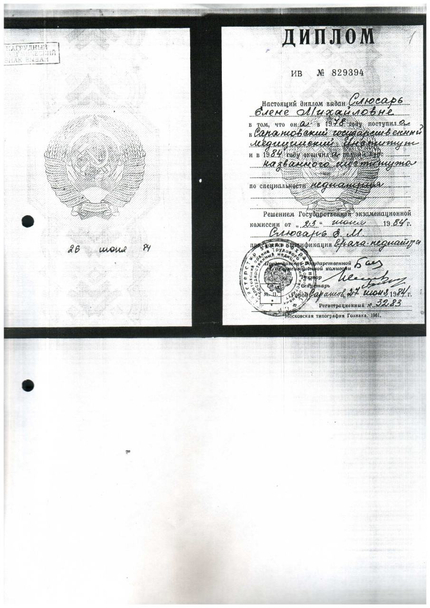 26 июня 84
ДИПЛОМ
1
ИВ № 829394
Настоящий диплом выдан Слюсарь
Елене Михайловне
в том, что она в 1978 году поступила
в Саратовский государственный
медицинский институт
и в 1984 году окончила полный курс
названного института
по специальности педиатрия
Решением Государственной экзаменационной
комиссии от „23" июня 1984 г.
Слюсарь Е. М.
квалификация врача-педиатра
Государственной
комиссии
Ректор
Секретарь
Город Саратов, 27 июня 1984 г.
Регистрационный № 3283
Московская типография Гознака. 1981.